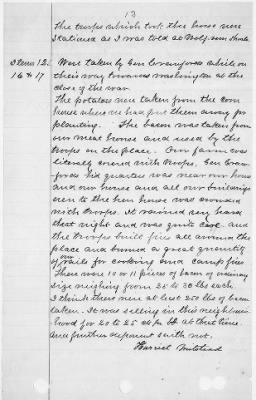 13
The troops which took this horse were
stationed as I was told at Wolf run Shoals
Items 12. Were taken by Gen Crawfords while on
16 & 17 their way towards Washington at the
close of the war.
The potatoes were taken from the corn
house where we had put them away for
planting. The bacon was taken from
our meat house and used by the
troops on the place. Our farm was
literally covered with troops. Gen Craw-
fords Hd quarters was near our house
and our house and all our buildings
even to the hen house was crowded
with troops. It rained very hard
that night and was quite cool and
the troops built fires all around the
place and burned a great quantity
of our rails for cooking and camp fires
There were 10 or 11 pieces of bacon of ordinary
size weighing from 25 to 30 lbs each.
I think there were at least 250 lbs of bacon
taken. It was selling in this neighbor-
hood for 20 to 25 cts per lb at that time
and further deponent saith not.
Harriet